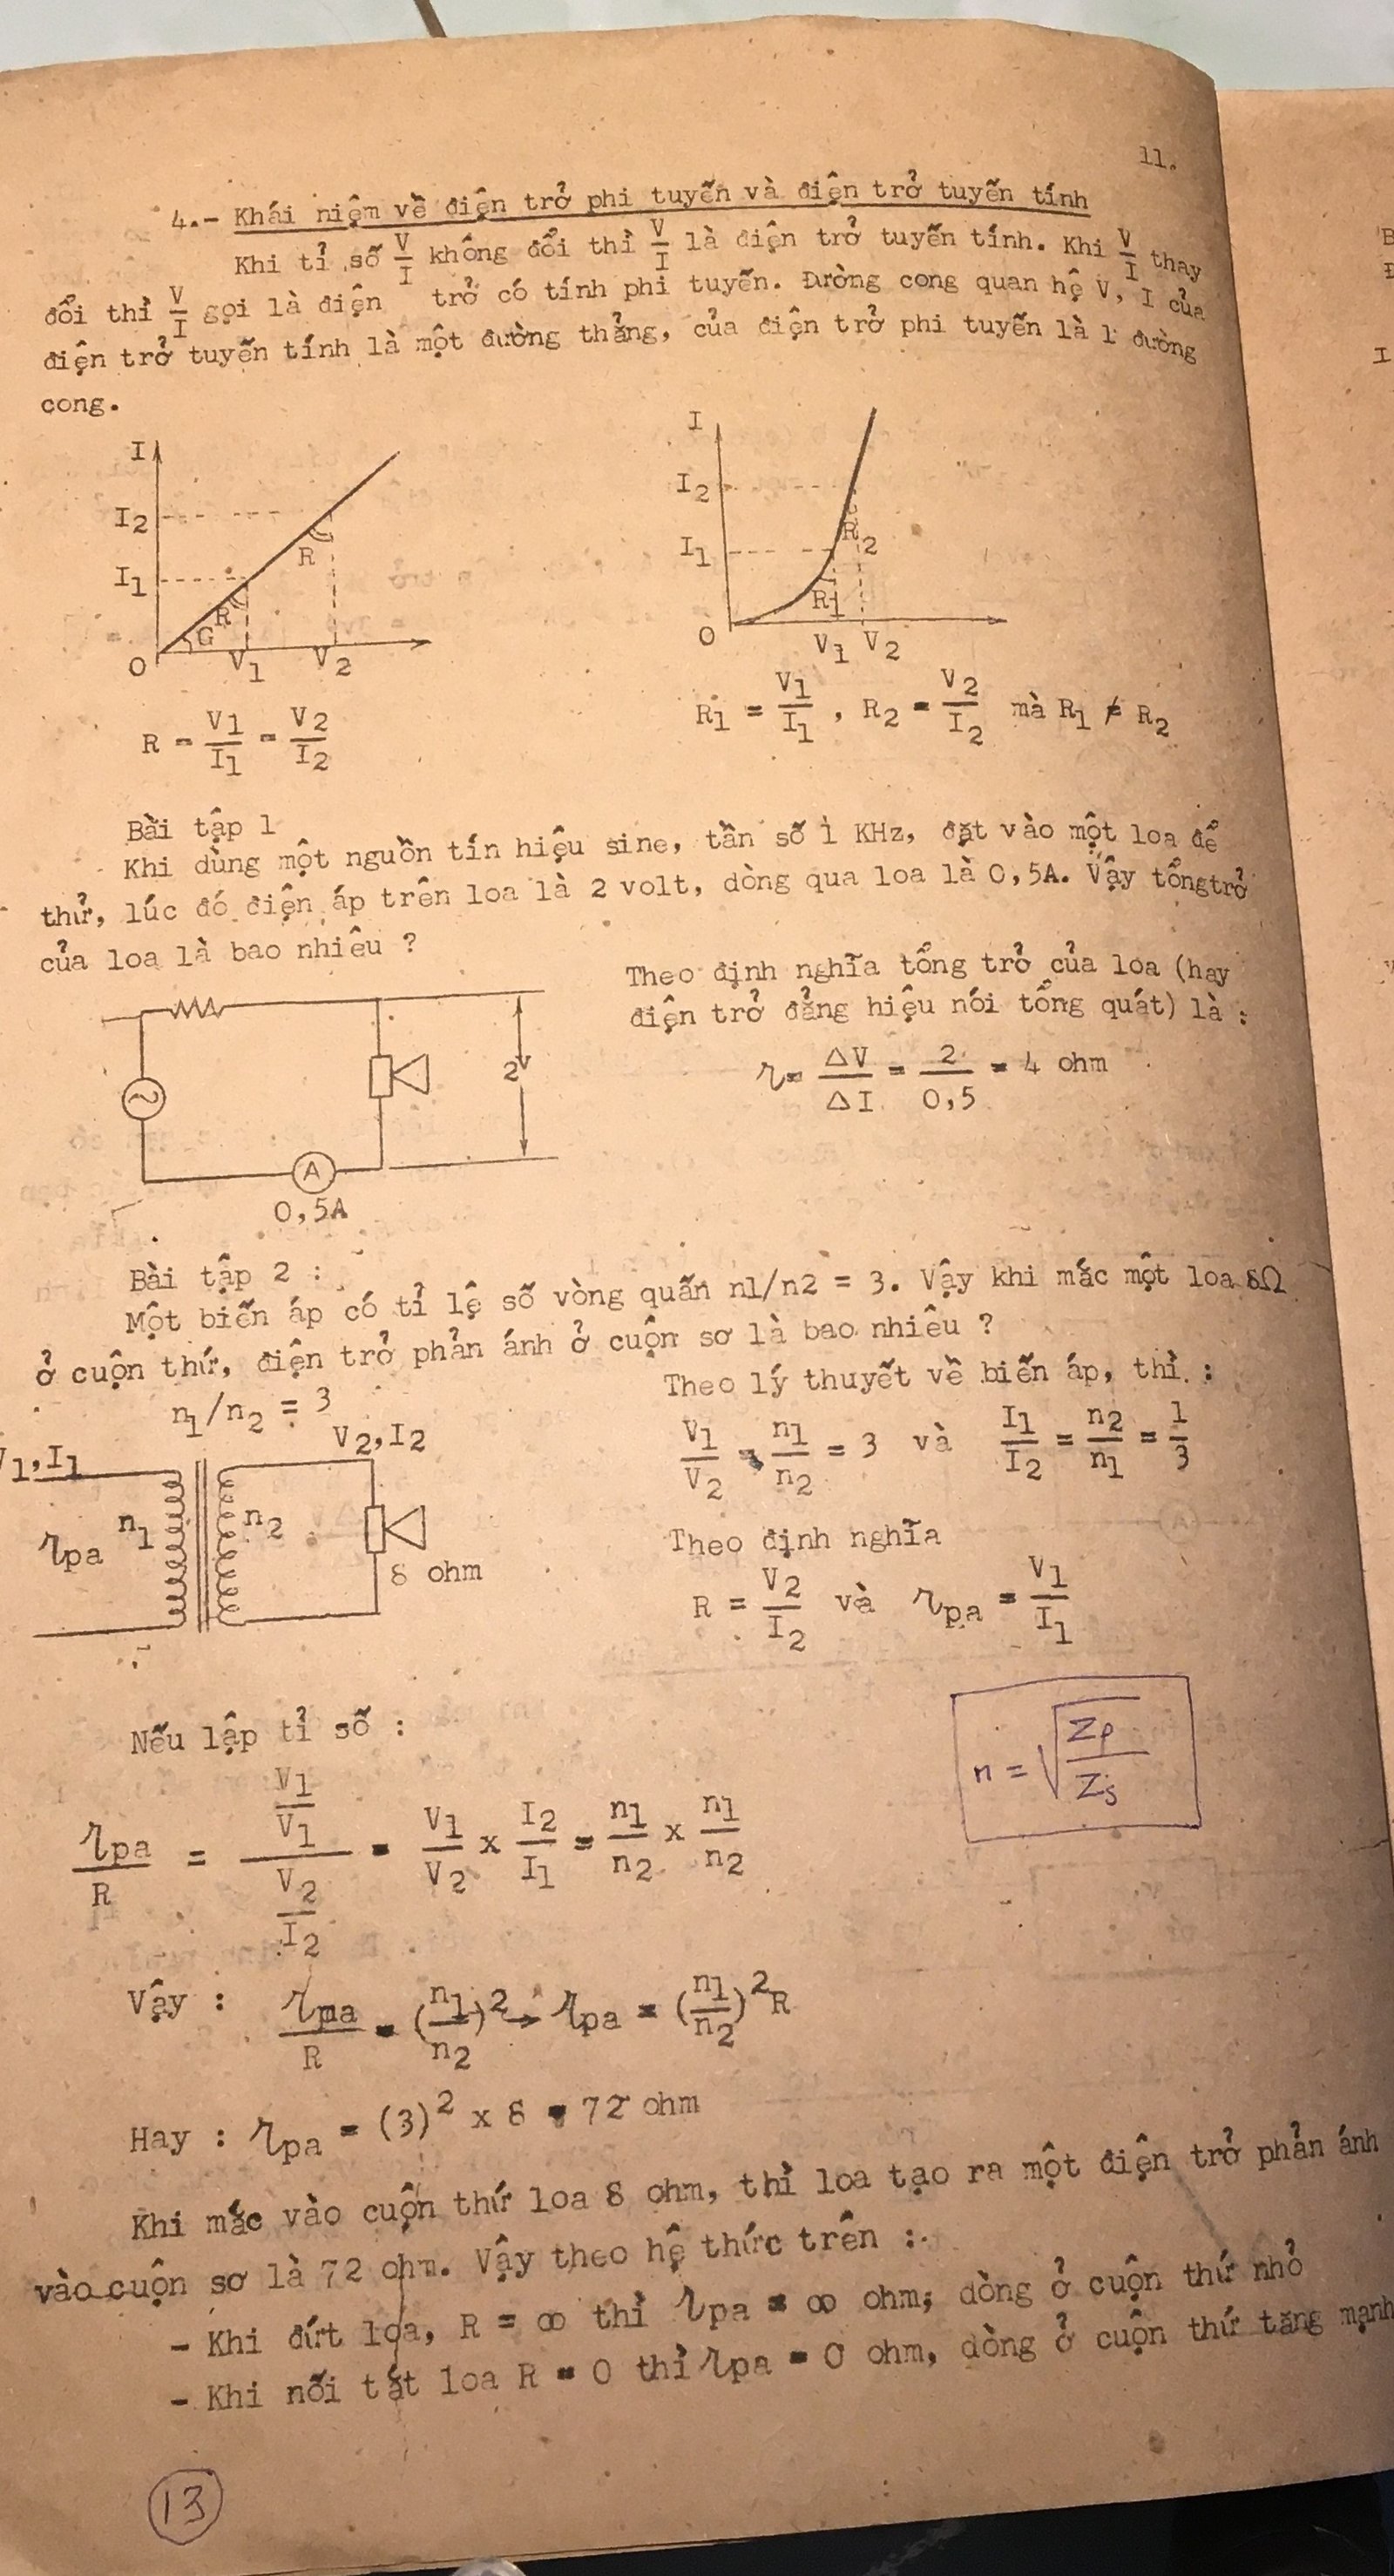 11.
4.- Khái niệm về điện trở phi tuyến và điện trở tuyến tính
Khi tỉ số V/I không đổi thì V/I là điện trở tuyến tính. Khi V/I thay
đổi thì V/I gọi là điện trở có tính phi tuyến. Đường cong quan hệ V, I của
điện trở tuyến tính là một đường thẳng, của điện trở phi tuyến là 1 đường
cong.
I
I2
I1
R
R
G
O
V1
V2
I
I2
I1
R2
R1
O
V1
V2
R = V1/I1 = V2/I2
R1 = V1/I1 , R2 = V2/I2 mà R1 ≠ R2
Bài tập 1
Khi dùng một nguồn tín hiệu sine, tần số 1 KHz, đặt vào một loa để
thử, lúc đó điện áp trên loa là 2 volt, dòng qua loa là 0,5A. Vậy tổngtrở
của loa là bao nhiêu ?
2V
A
0,5A
Theo định nghĩa tổng trở của loa (hay
điện trở đẳng hiệu nói tổng quát) là :
r = ΔV/ΔI = 2/0,5 = 4 ohm
Bài tập 2 :
Một biến áp có tỉ lệ số vòng quấn n1/n2 = 3. Vậy khi mắc một loa 8Ω
ở cuộn thứ, điện trở phản ánh ở cuộn sơ là bao nhiêu ?
n1/n2 = 3
V1,I1
V2,I2
rpa
n1
n2
8 ohm
Theo lý thuyết về biến áp, thì :
V1/V2 = n1/n2 = 3 và I1/I2 = n2/n1 = 1/3
Theo định nghĩa
R = V2/I2 và rpa = V1/I1
n = √(Zp/Zs)
Nếu lập tỉ số :
rpa/R = (V1/V1)/(V2/I2) = V1/V2 x I2/I1 = n1/n2 x n1/n2
Vậy : rpa/R = (n1/n2)2 → rpa = (n1/n2)2R
Hay : rpa = (3)2 x 8 = 72 ohm
Khi mắc vào cuộn thứ loa 8 ohm, thì loa tạo ra một điện trở phản ánh
vào cuộn sơ là 72 ohm. Vậy theo hệ thức trên :
- Khi đứt loa, R = ∞ thì rpa = ∞ ohm; dòng ở cuộn thứ nhỏ
- Khi nối tắt loa R = 0 thì rpa = 0 ohm, dòng ở cuộn thứ tăng mạnh
13